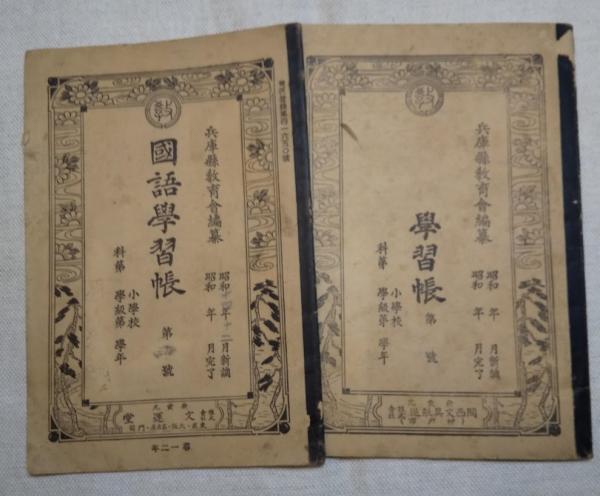 兵庫縣教育會編纂
國語學習帳
第 號
昭和十四年十二月新調
昭和 年 月完了
小學校
科第 學級第 學年
發賣元
文運堂
尋一二年
兵庫縣教育會編纂
學習帳
第 號
昭和 年 月新調
昭和 年 月完了
小學校
科第 學級第 學年